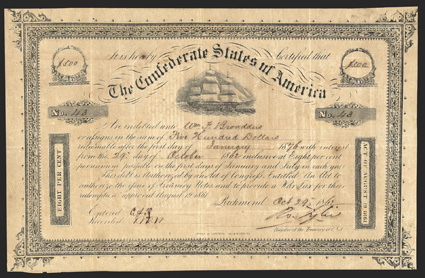 It is hereby Certified that
$500
$500
The Confederate States of America
No. 43
No. 43
Are indebted unto Wm F Broaddus
or assigns in the sum of Five Hundred Dollars
redeemable after the first day of January 1876 with interest
from the 29th day of October 1861 inclusive at Eight per cent
per annum payable on the first days of January and July in each year
This debt is authorized by an Act of Congress, Entitled "An Act to
authorize the issue of Treasury Notes and to provide a War Tax for their
redemption" approved August 19 1861
EIGHT PER CENT
ACT OF AUGUST 19 1861
Richmond Oct 29 1861
Entered
Recorded
Register of the Treasury C.S.